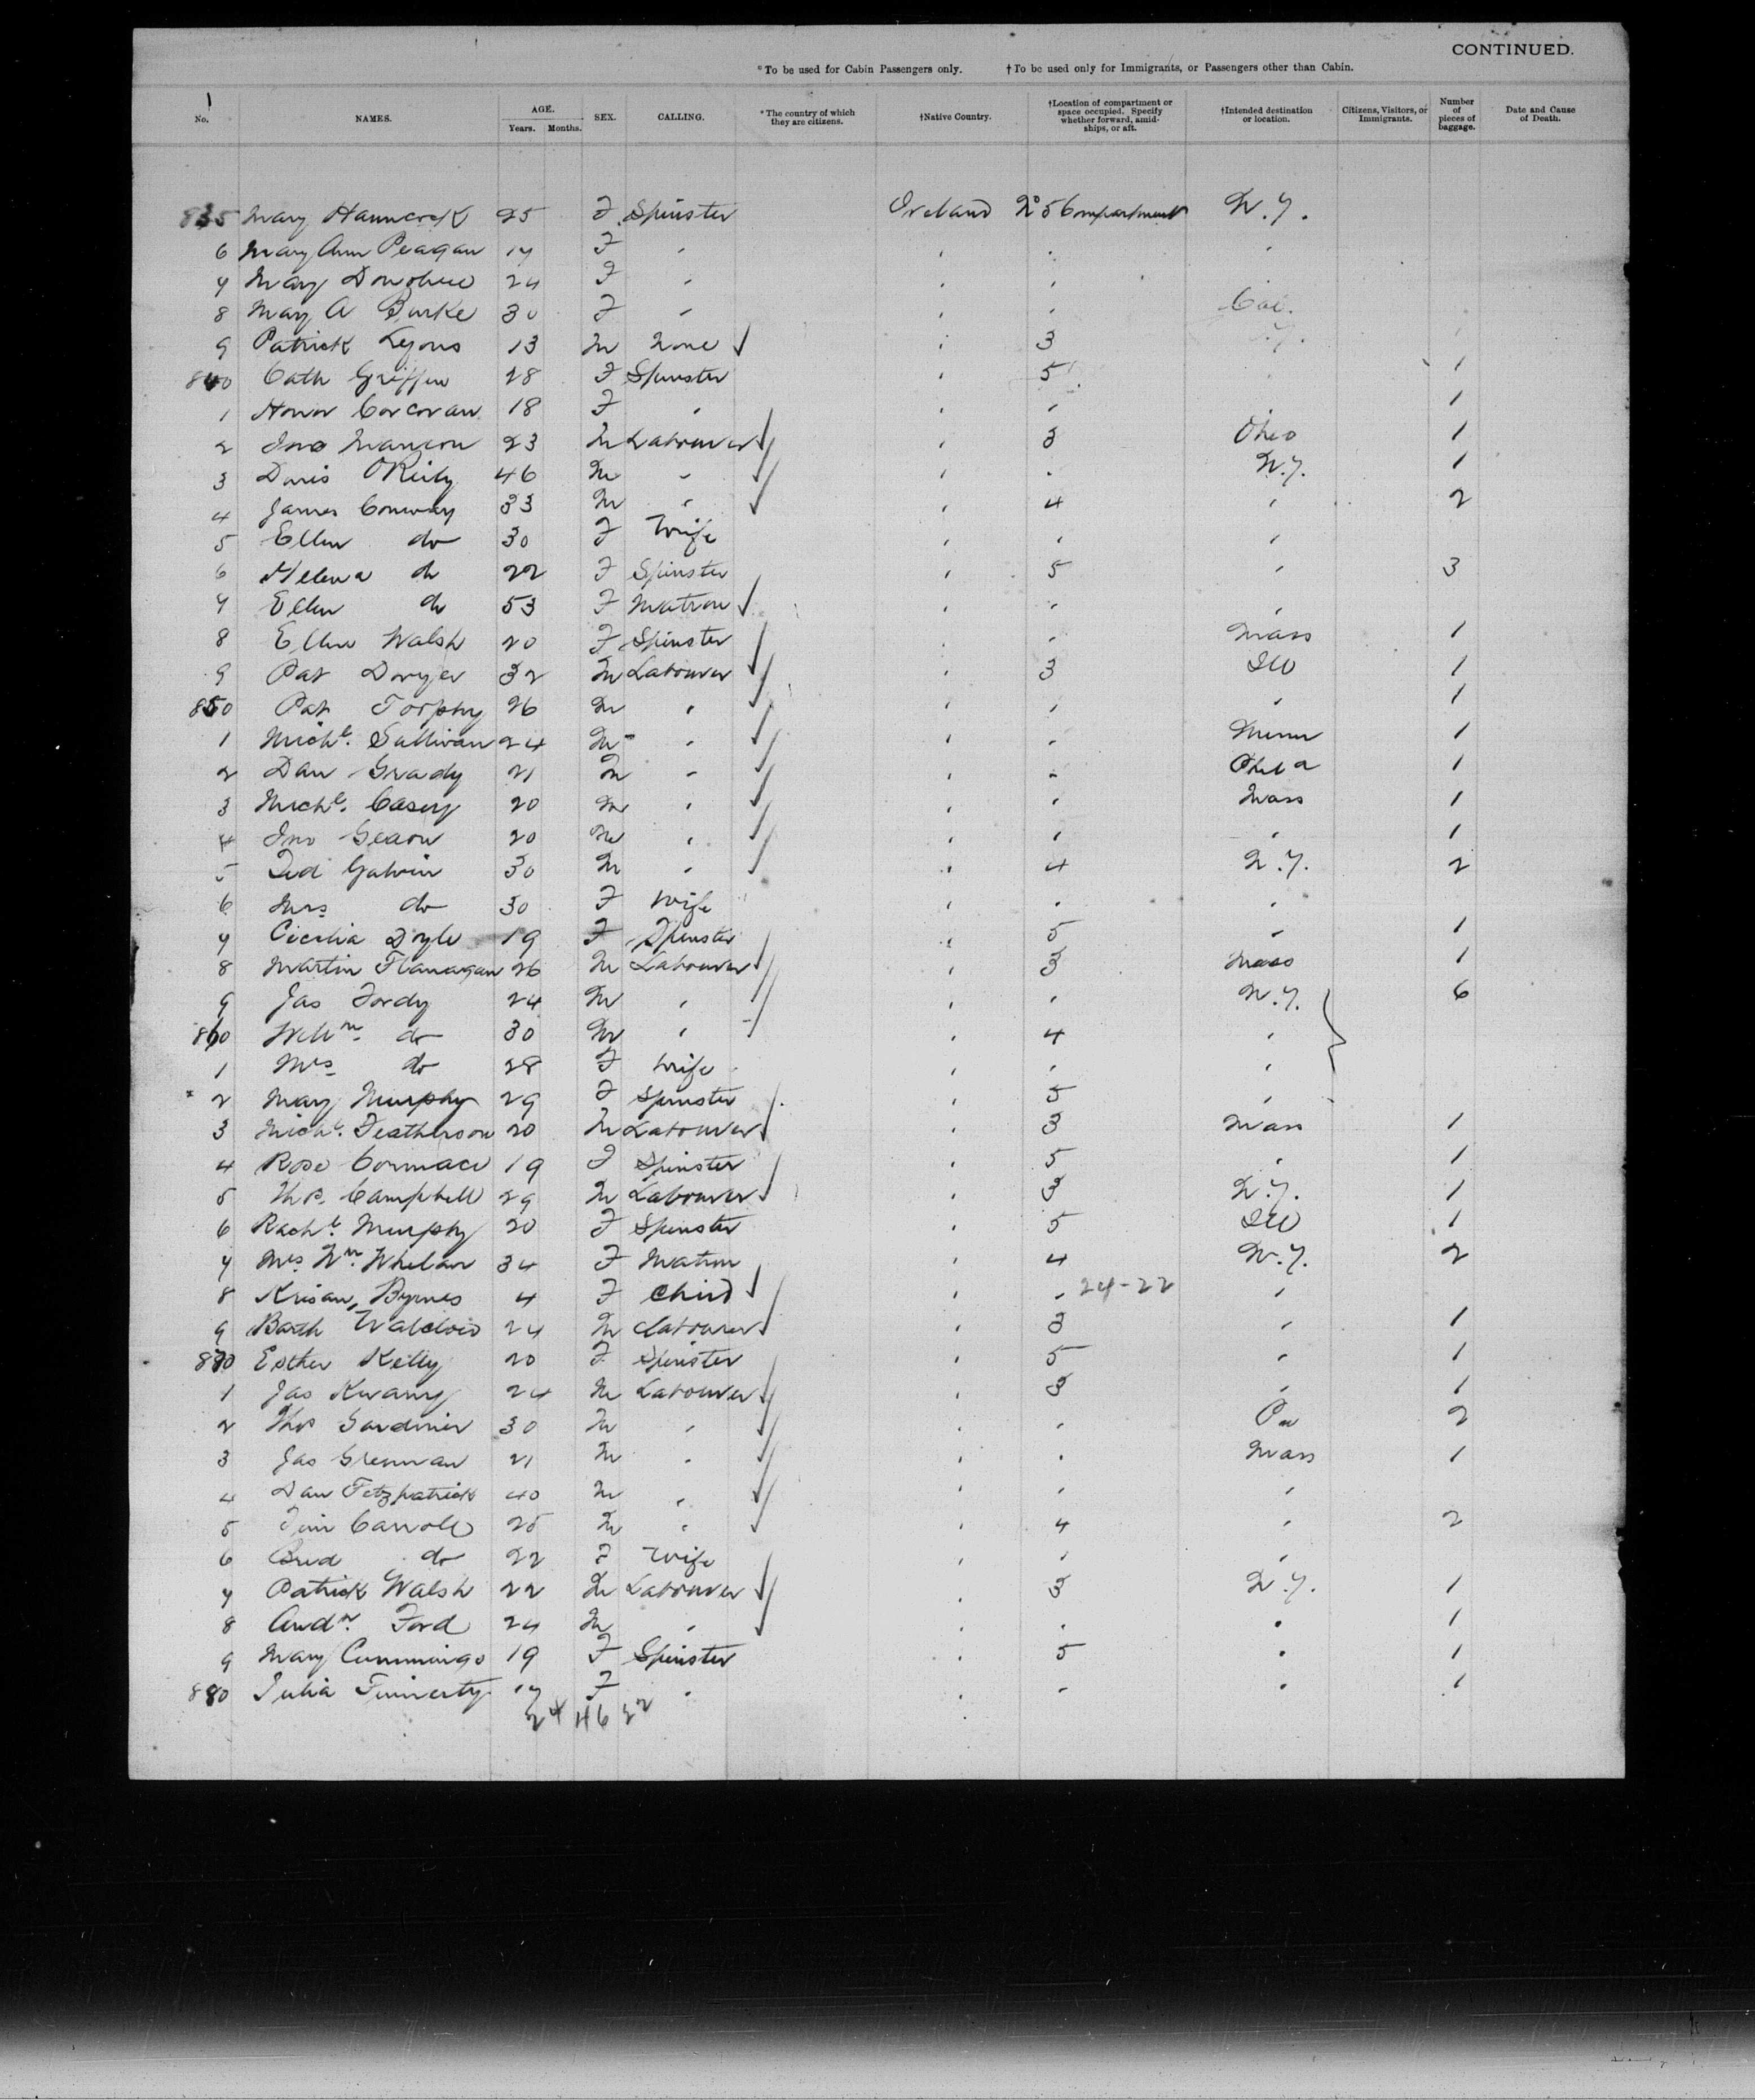 CONTINUED.
*To be used for Cabin Passengers only. †To be used only for Immigrants, or Passengers other than Cabin.
1
No. NAMES. AGE. Years. Months. SEX. CALLING. *The country of which they are citizens. †Native Country. †Location of compartment or space occupied. Specify whether forward, amidships, or aft. †Intended destination or location. Citizens, Visitors, or Immigrants. Number of pieces of baggage. Date and Cause of Death.
835 Mary Hanncock 25 F Spinster Ireland No 5 Compartment N.Y.
6 Mary Ann Reagan 17 F " " " "
7 Mary Donohue 24 F " " "
8 Mary A Burke 30 F " " " Cal.
9 Patrick Lyons 13 M None " 3 Y.
840 Cath Griffin 28 F Spinster 5 1
1 Honor Corcoran 18 F " " " 1
2 Jno 23 M Labourer " 3 Ohio 1
3 O'Reily 46 M " " " N.Y. 1
4 James Conway 33 M " " 4 " 2
5 Ellen do 30 F Wife " " "
6 Helena do 22 F Spinster " 5 " 3
7 Ellen do 53 F Matron " " "
8 Ellen Walsh 20 F Spinster " " Mass 1
9 Pat Dwyer 32 M Labourer " 3 Ill 1
850 Pat Torphy 26 M " " " " 1
1 Michl. Sullivan 24 M " " " Minn 1
2 Dan Grady 21 M " " " Phila 1
3 Michl. Casey 20 M " " " Mass 1
4 Jno Gearon 20 M " " " " 1
5 Ted Galvin 30 M " " 4 N.Y. 2
6 Mrs do 30 F Wife " " "
7 Cicelia Doyle 19 F Spinster " 5 " 1
8 Martin Flanagan 26 M Labourer 3 Mass 1
9 Jas Fordy 24 M " " " N.Y. 6
860 Willm do 30 M " " 4 "
1 Mrs do 28 F Wife " " "
2 Mary Murphy 29 F Spinster " 5 "
3 Michl. Featherson 20 M Labourer " 3 Mass 1
4 Rose Cormace 19 F Spinster " 5 " 1
5 Thos. Campbell 29 M Labourer " 3 N.Y. 1
6 Rachl. Murphy 20 F Spinster " 5 Ill 1
7 Mrs Wm. Whelan 34 F Matron " 4 N.Y. 2
8 Byrnes 4 F Child " " 24-22 "
9 Barth 24 M Labourer " 3 " 1
870 Esther Kelly 20 F Spinster 5 " 1
1 Jas 24 M Labourer " 3 " 1
2 Thos Gardinier 30 M " " " Pa 2
3 Jas Grennan 21 M " " " Mass 1
4 Dan Fitzpatrick 40 M " " " "
5 Tim Carroll 25 M " " 4 " 2
6 Brid do 22 F Wife " " "
7 Patrick Walsh 22 M Labourer " 3 N.Y. 1
8 Andw. Ford 24 M " " " " 1
9 Mary Cummings 19 F Spinster " 5 " 1
880 Julia Finnerty 17 F " " " " 1
24 46 22